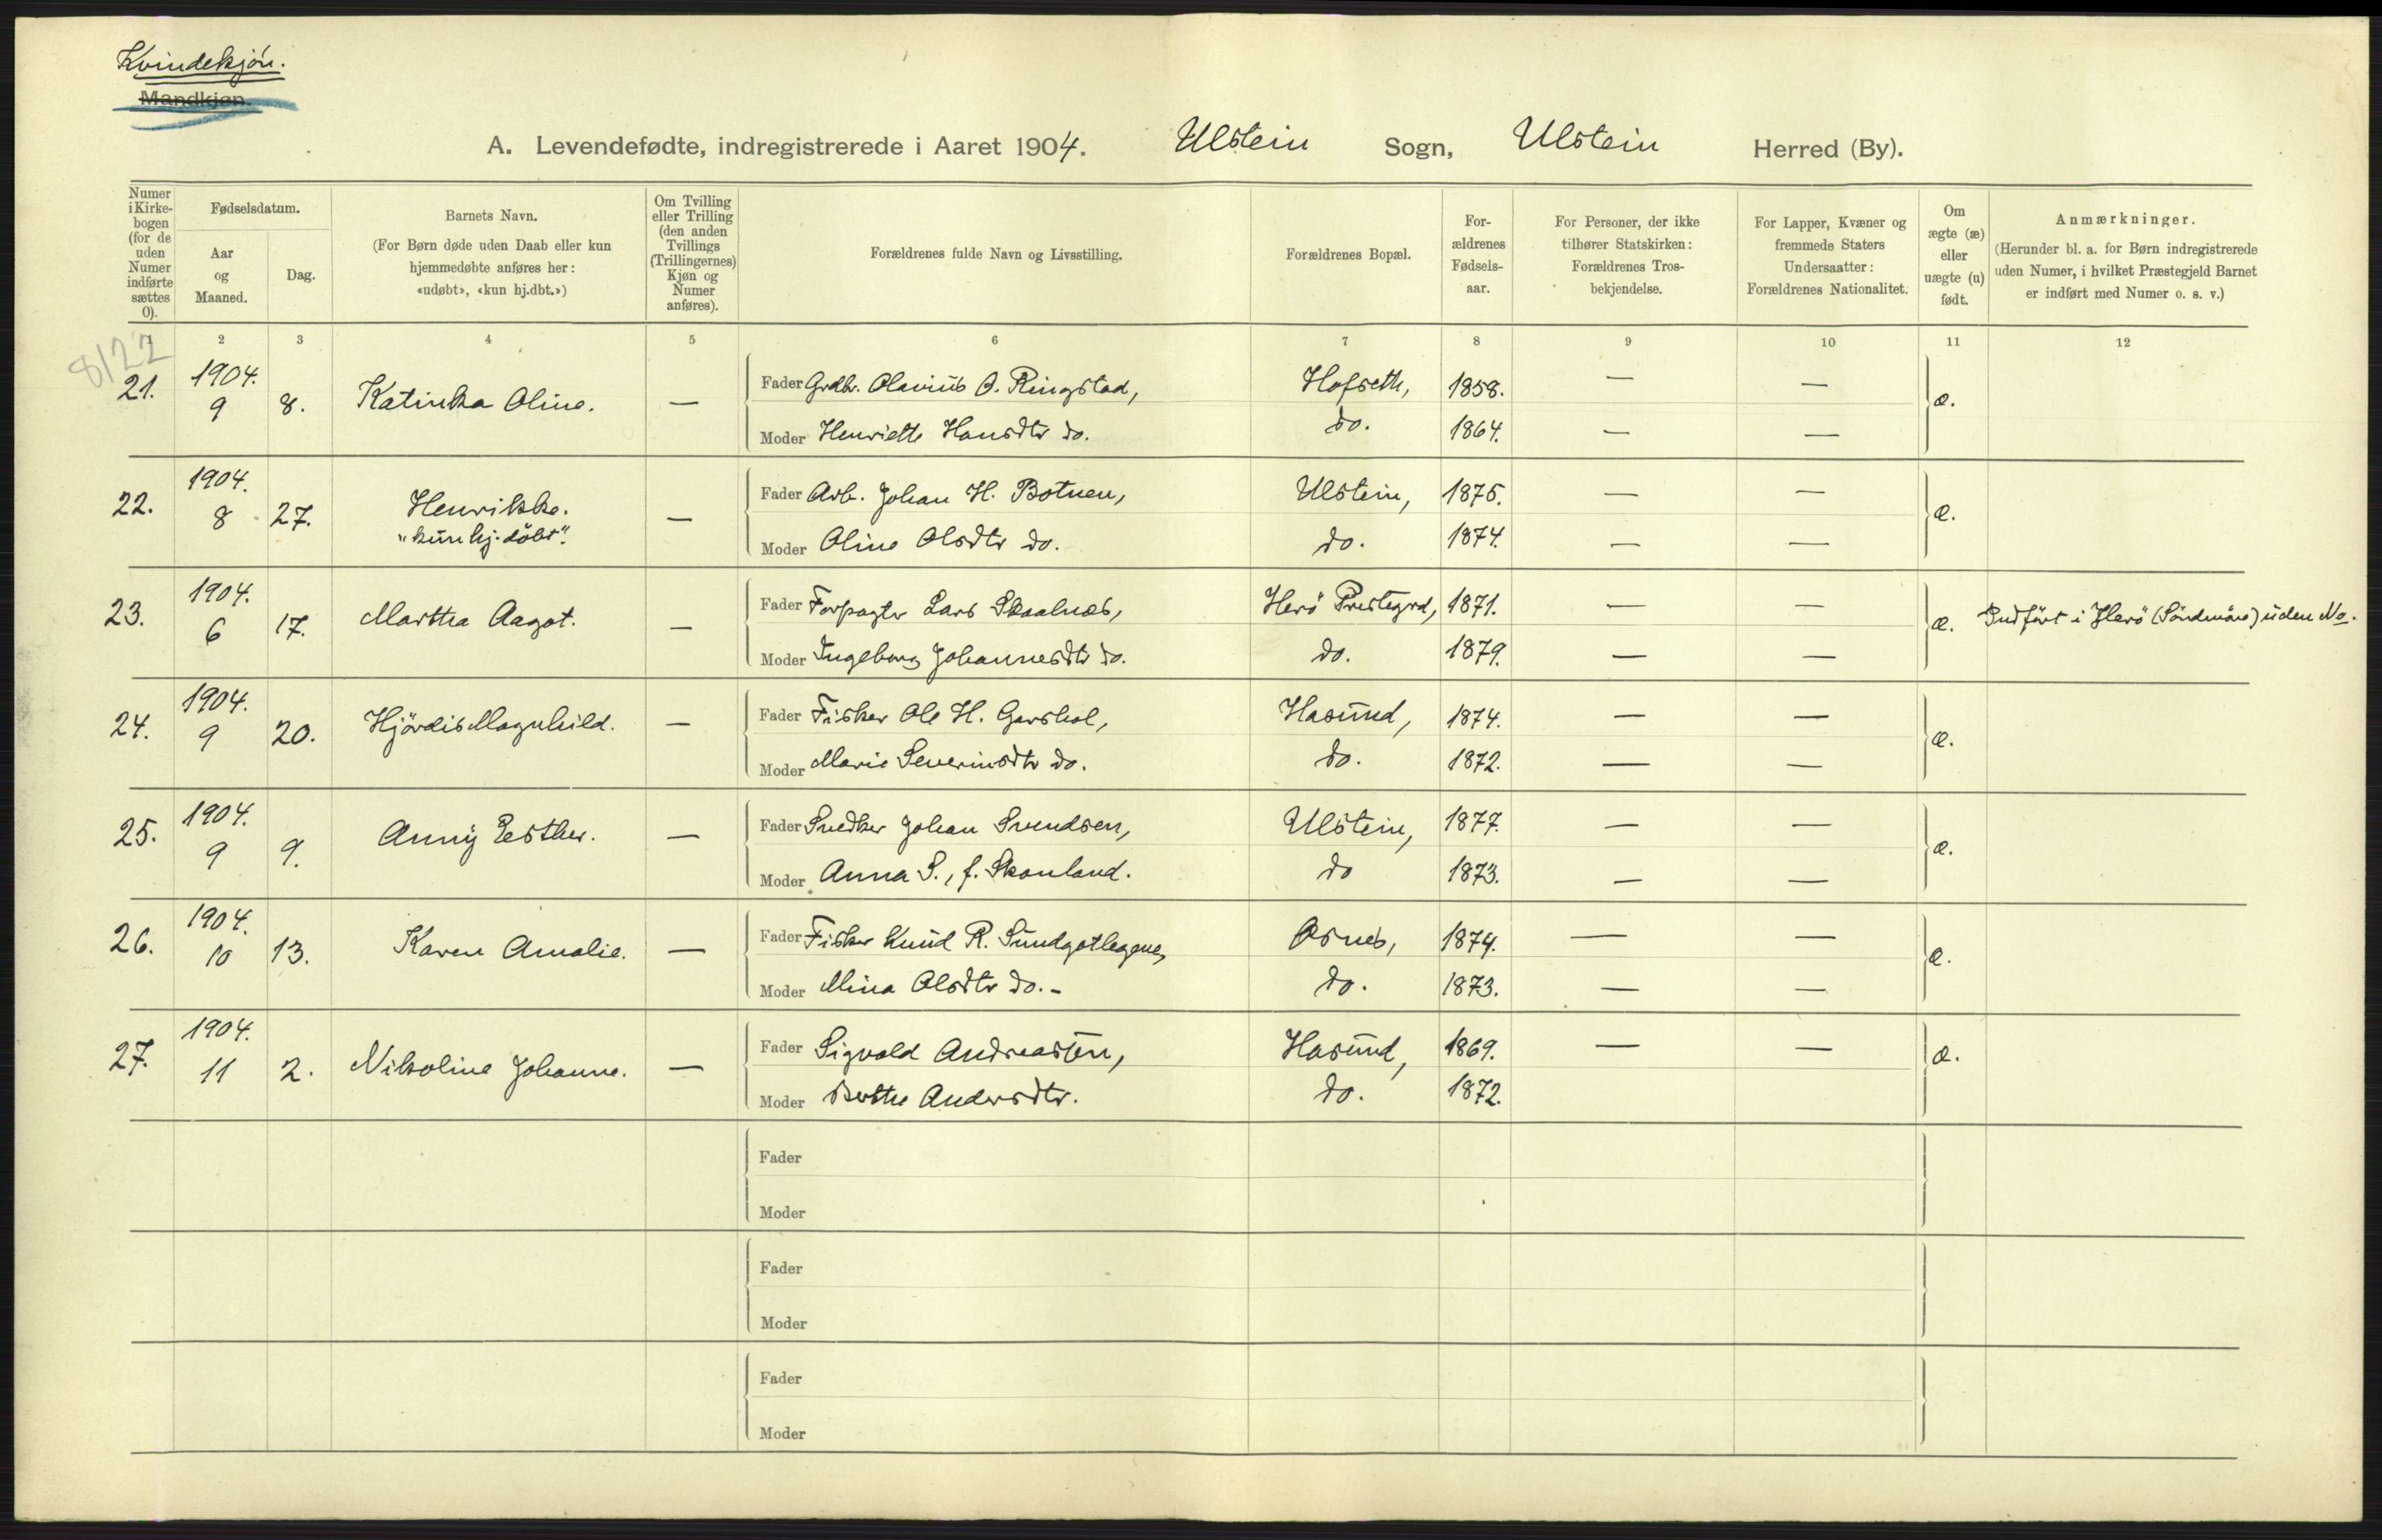 Kvindekjön.
Mandkjøn.
A. Levendefødte, indregistrerede i Aaret 1904. Ulstein Sogn, Ulstein Herred (By).
Numer i Kirkebogen (for de uden Numer indførte sættes 0).
Fødselsdatum.
Aar og Maaned.
Dag.
Barnets Navn.
(For Børn døde uden Daab eller kun hjemmedøbte anføres her: «udøbt», «kun hj.dbt.»)
Om Tvilling eller Trilling (den anden Tvillings (Trillingernes) Kjøn og Numer anføres).
Forældrenes fulde Navn og Livsstilling.
Forældrenes Bopæl.
For-ældrenes Fødsels-aar.
For Personer, der ikke tilhører Statskirken: Forældrenes Tros-bekjendelse.
For Lapper, Kvæner og fremmede Staters Undersaatter: Forældrenes Nationalitet.
Om ægte (æ) eller uægte (u) født.
Anmærkninger.
(Herunder bl. a. for Børn indregistrerede uden Numer, i hvilket Præstegjeld Barnet er indført med Numer o. s. v.)
1 2 3 4 5 6 7 8 9 10 11 12
8/22
21. 1904. 9 8. Katinka Oline. — Fader Grdbr. Olavius O. Ringstad, Hofseth, 1858. — — æ.
Moder Henriette Hansdtr do. do. 1864. — —
22. 1904. 8 27. Henrikke. "kun hj. döbt". — Fader Arb. Johan H. Botnen, Ulstein, 1875. — — æ.
Moder Oline Olsdtr do. do. 1874. — —
23. 1904. 6 17. Martha Aagot. — Fader Forpagter Lars Skaalnes, Herö Prestegrd, 1871. — — æ. Indført i Herö (Söndmöre) uden No.
Moder Ingeborg Johannesdtr do. do. 1879. — —
24. 1904. 9 20. Hjördis Magnhild. — Fader Fisker Ole H. Garshol, Hasund, 1874. — — æ.
Moder Marie Severinsdtr do. do. 1872. — —
25. 1904. 9 9. Anny Esther. — Fader Snedker Johan Svendsen, Ulstein, 1877. — — æ.
Moder Anna S., f. Skonland. do 1873. — —
26. 1904. 10 13. Karen Amalie. — Fader Fisker Knud R. Sundgotlegene, Osnes, 1874. — — æ.
Moder Mina Olsdtr do. - do. 1873. — —
27. 1904. 11 2. Nikoline Johanne. — Fader Sigvald Andreassen, Hasund, 1869. — — æ.
Moder Berthe Andersdtr. do. 1872.
Fader
Moder
Fader
Moder
Fader
Moder